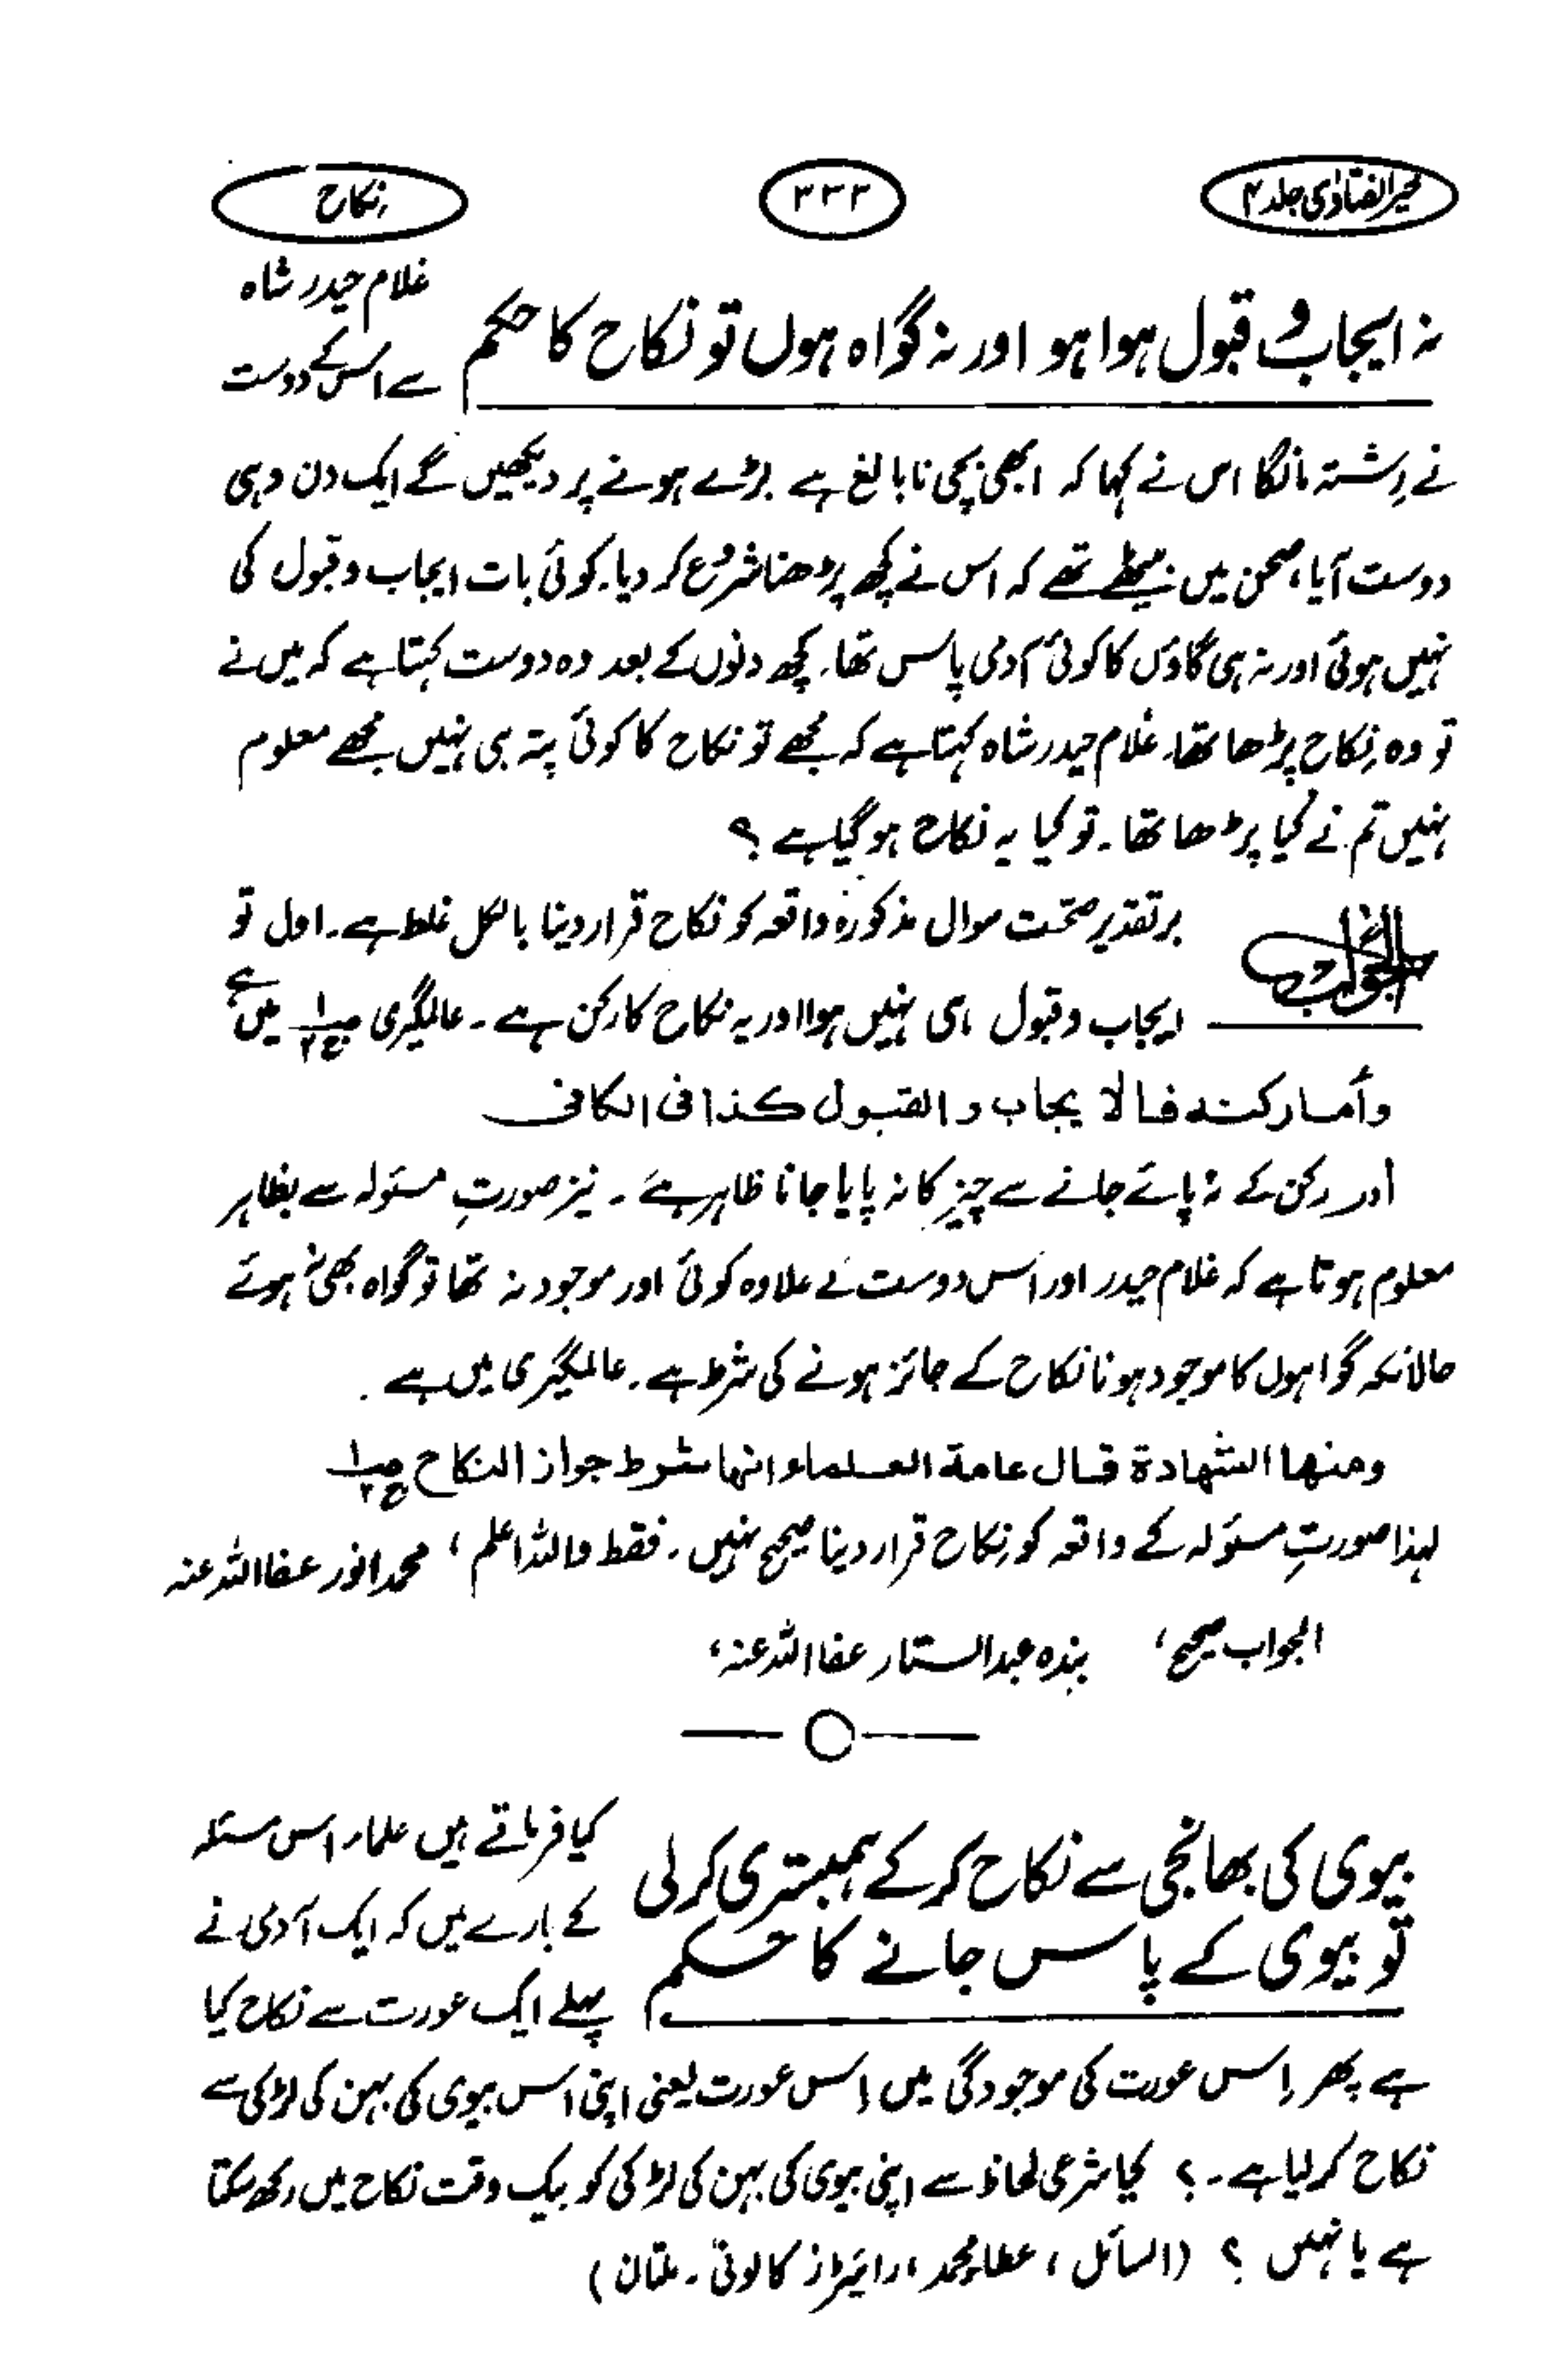 خیر الفتاوٰی جلد ۴
۳۳۳
نکاح
نہ ایجاب و قبول ہوا ہو اور نہ گواہ ہوں تو نکاح کا حکم
غلام حیدر شاہ
سے اس کے دوست
نے رِشتہ مانگا اس نے کہا کہ ابھی بچی نابالغ ہے بڑے ہونے پر دیکھیں گے ایک دن وہی
دوست آیا، صحن میں بیٹھے تھے کہ اس نے کچھ پڑھنا شروع کر دیا۔ کوئی بات ایجاب و قبول کی
نہیں ہوئی اور نہ ہی گاؤں کا کوئی آدمی پاس تھا۔ کچھ دنوں کے بعد وہ دوست کہتا ہے کہ میں نے
تو وہ نِکاح پڑھا تھا۔ غلام حیدر شاہ کہتا ہے کہ مجھے تو نکاح کا کوئی پتہ ہی نہیں مجھے معلوم
نہیں تم نے کیا پڑھا تھا۔ تو کیا یہ نکاح ہو گیا ہے ؟
الجواب
برتقدیر صحّت سوال مذکورہ واقعہ کو نکاح قرار دینا بالکل غلط ہے۔ اول تو
ایجاب و قبول ہی نہیں ہوا اور یہ نکاح کا رکن ہے۔ عالمگیری ص۱ ج۲ میں ہے
وأما رکنہ فالا یجاب و القبول کذا فی الکافی
اور رکن کے نہ پائے جانے سے چیز کا نہ پایا جانا ظاہر ہے۔ نیز صورتِ مسئولہ سے بظاہر
معلوم ہوتا ہے کہ غلام حیدر اور اس دوست کے علاوہ کوئی اور موجود نہ تھا تو گواہ بھی نہ ہوئے
حالانکہ گواہوں کا موجود ہونا نکاح کے جائز ہونے کی شرط ہے۔ عالمگیری میں ہے۔
ومنھا الشھادة قال عامة العلماء انھا شرط جواز النکاح ص۱ ج۲
لہذا صورتِ مسئولہ کے واقعہ کو نِکاح قرار دینا صحیح نہیں۔ فقط واللہ اعلم ، محمد انور عفا اللہ عنہ
الجواب صحیح ، بندہ عبدالستار عفا اللہ عنہ ،
بیوی کی بھانجی سے نکاح کر کے ہمبستری کر لی
تو بیوی کے پاس جانے کا حکم
کیا فرماتے ہیں علماء اس مسئلہ
کے بارے میں کہ ایک آدمی نے
پہلے ایک عورت سے نکاح کیا
ہے پھر اِس عورت کی موجودگی میں اِس عورت یعنی اپنی اس بیوی کی بہن کی لڑکی سے
نکاح کر لیا ہے۔ ؟ کیا شرعی لحاظ سے اپنی بیوی کی بہن کی لڑکی کو بیک وقت نکاح میں رکھ سکتا
ہے یا نہیں ؟ (السائل ، عطاء محمد ، رائیٹرز کالونی۔ ملتان)